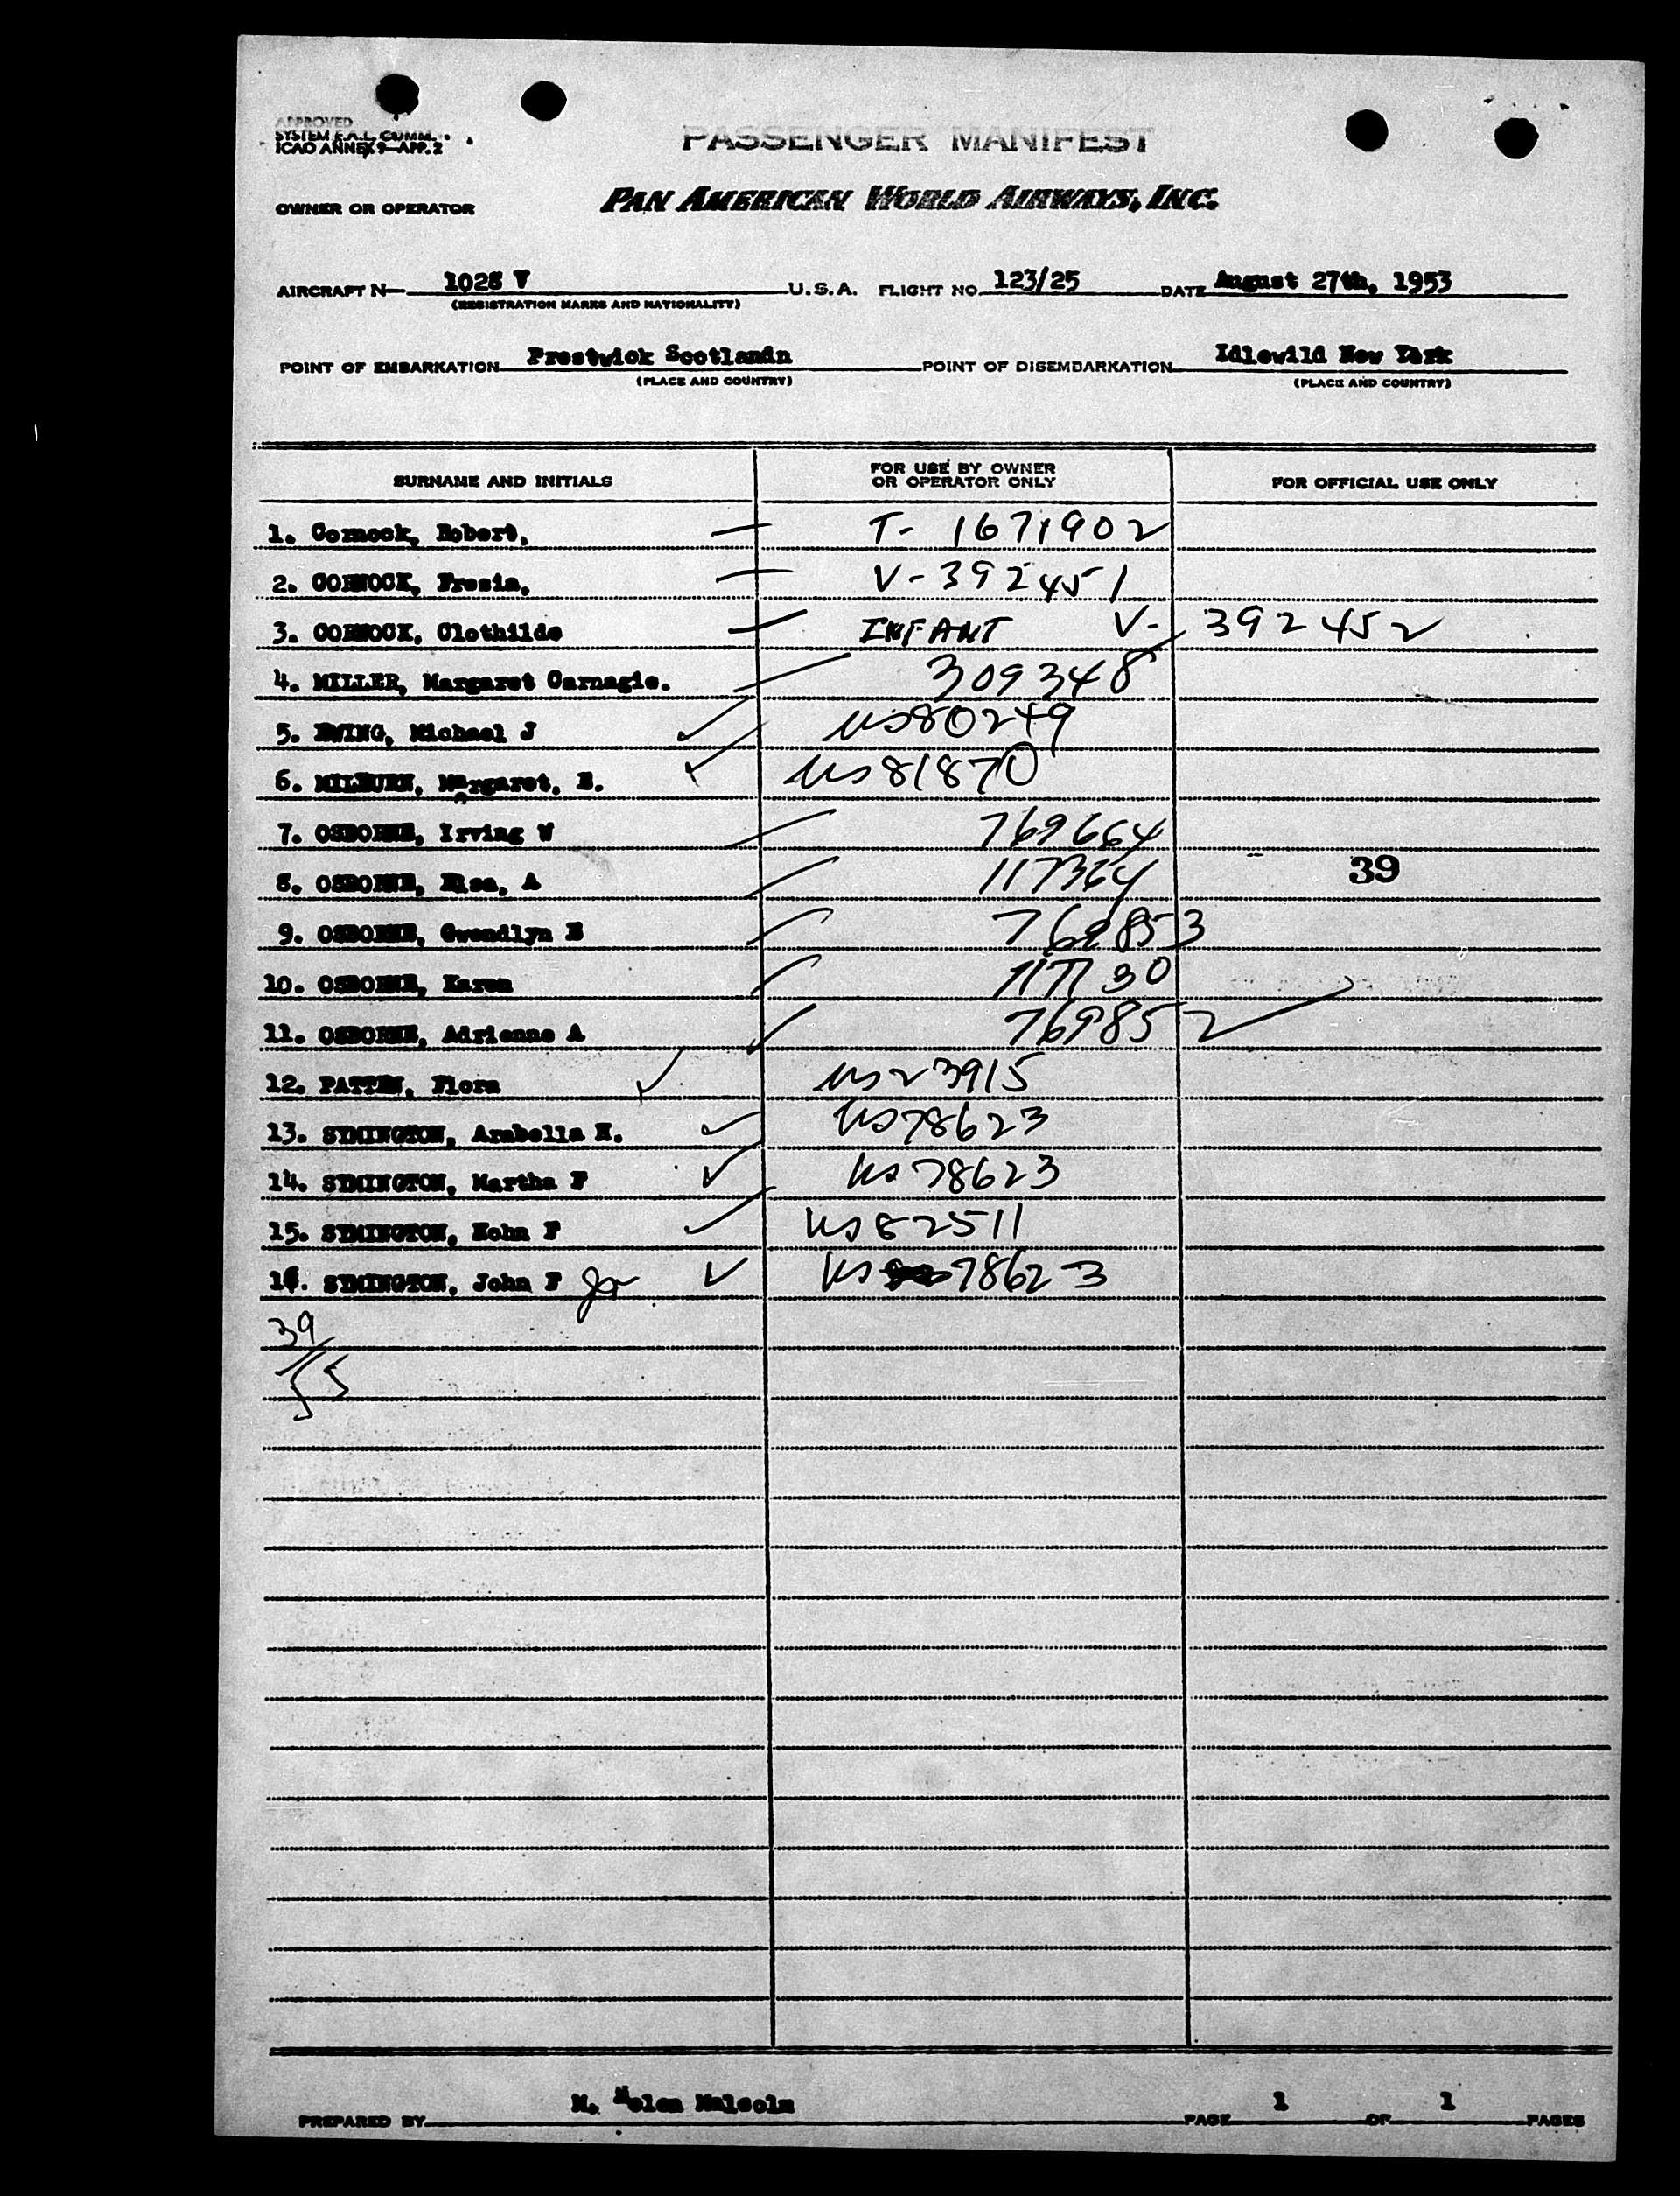 APPROVED
SYSTEM F.A.L. COMM.
ICAO ANNEX 9-APP. 2
PASSENGER MANIFEST
OWNER OR OPERATOR PAN AMERICAN WORLD AIRWAYS, INC.
AIRCRAFT N— 1028 V U.S.A. FLIGHT NO. 123/25 DATE August 27th, 1953
(REGISTRATION MARKS AND NATIONALITY)
POINT OF EMBARKATION Prestwick Scotlanin POINT OF DISEMBARKATION Idlewild New York
(PLACE AND COUNTRY) (PLACE AND COUNTRY)
SURNAME AND INITIALS FOR USE BY OWNER OR OPERATOR ONLY FOR OFFICIAL USE ONLY
1. Cornock, Robert, T- 1671902
2. CORNOCK, Fresia, V-392451
3. CORNOCK, Clothilde INFANT V- 392452
4. MILLER, Margaret Carnagie. 309348
5. EWING, Michael J US80249
6. MILBURN, Margaret, E. US81870
7. OSBORNE, Irving W 769664
8. OSBORNE, Elsa, A 117364 39
9. OSBORNE, Gwendlyn E 769853
10. OSBORNE, Karen 117130
11. OSBORNE, Adrienne A 769852
12. PATTEN, Flora US23915
13. SYMINGTON, Arabella H. US78623
14. SYMINGTON, Martha F US 78623
15. SYMINGTON, Hohn F US82511
16. SYMINGTON, John F Jr US 78623
39
55
PREPARED BY M. Helen Malcolm PAGE 1 OF 1 PAGES